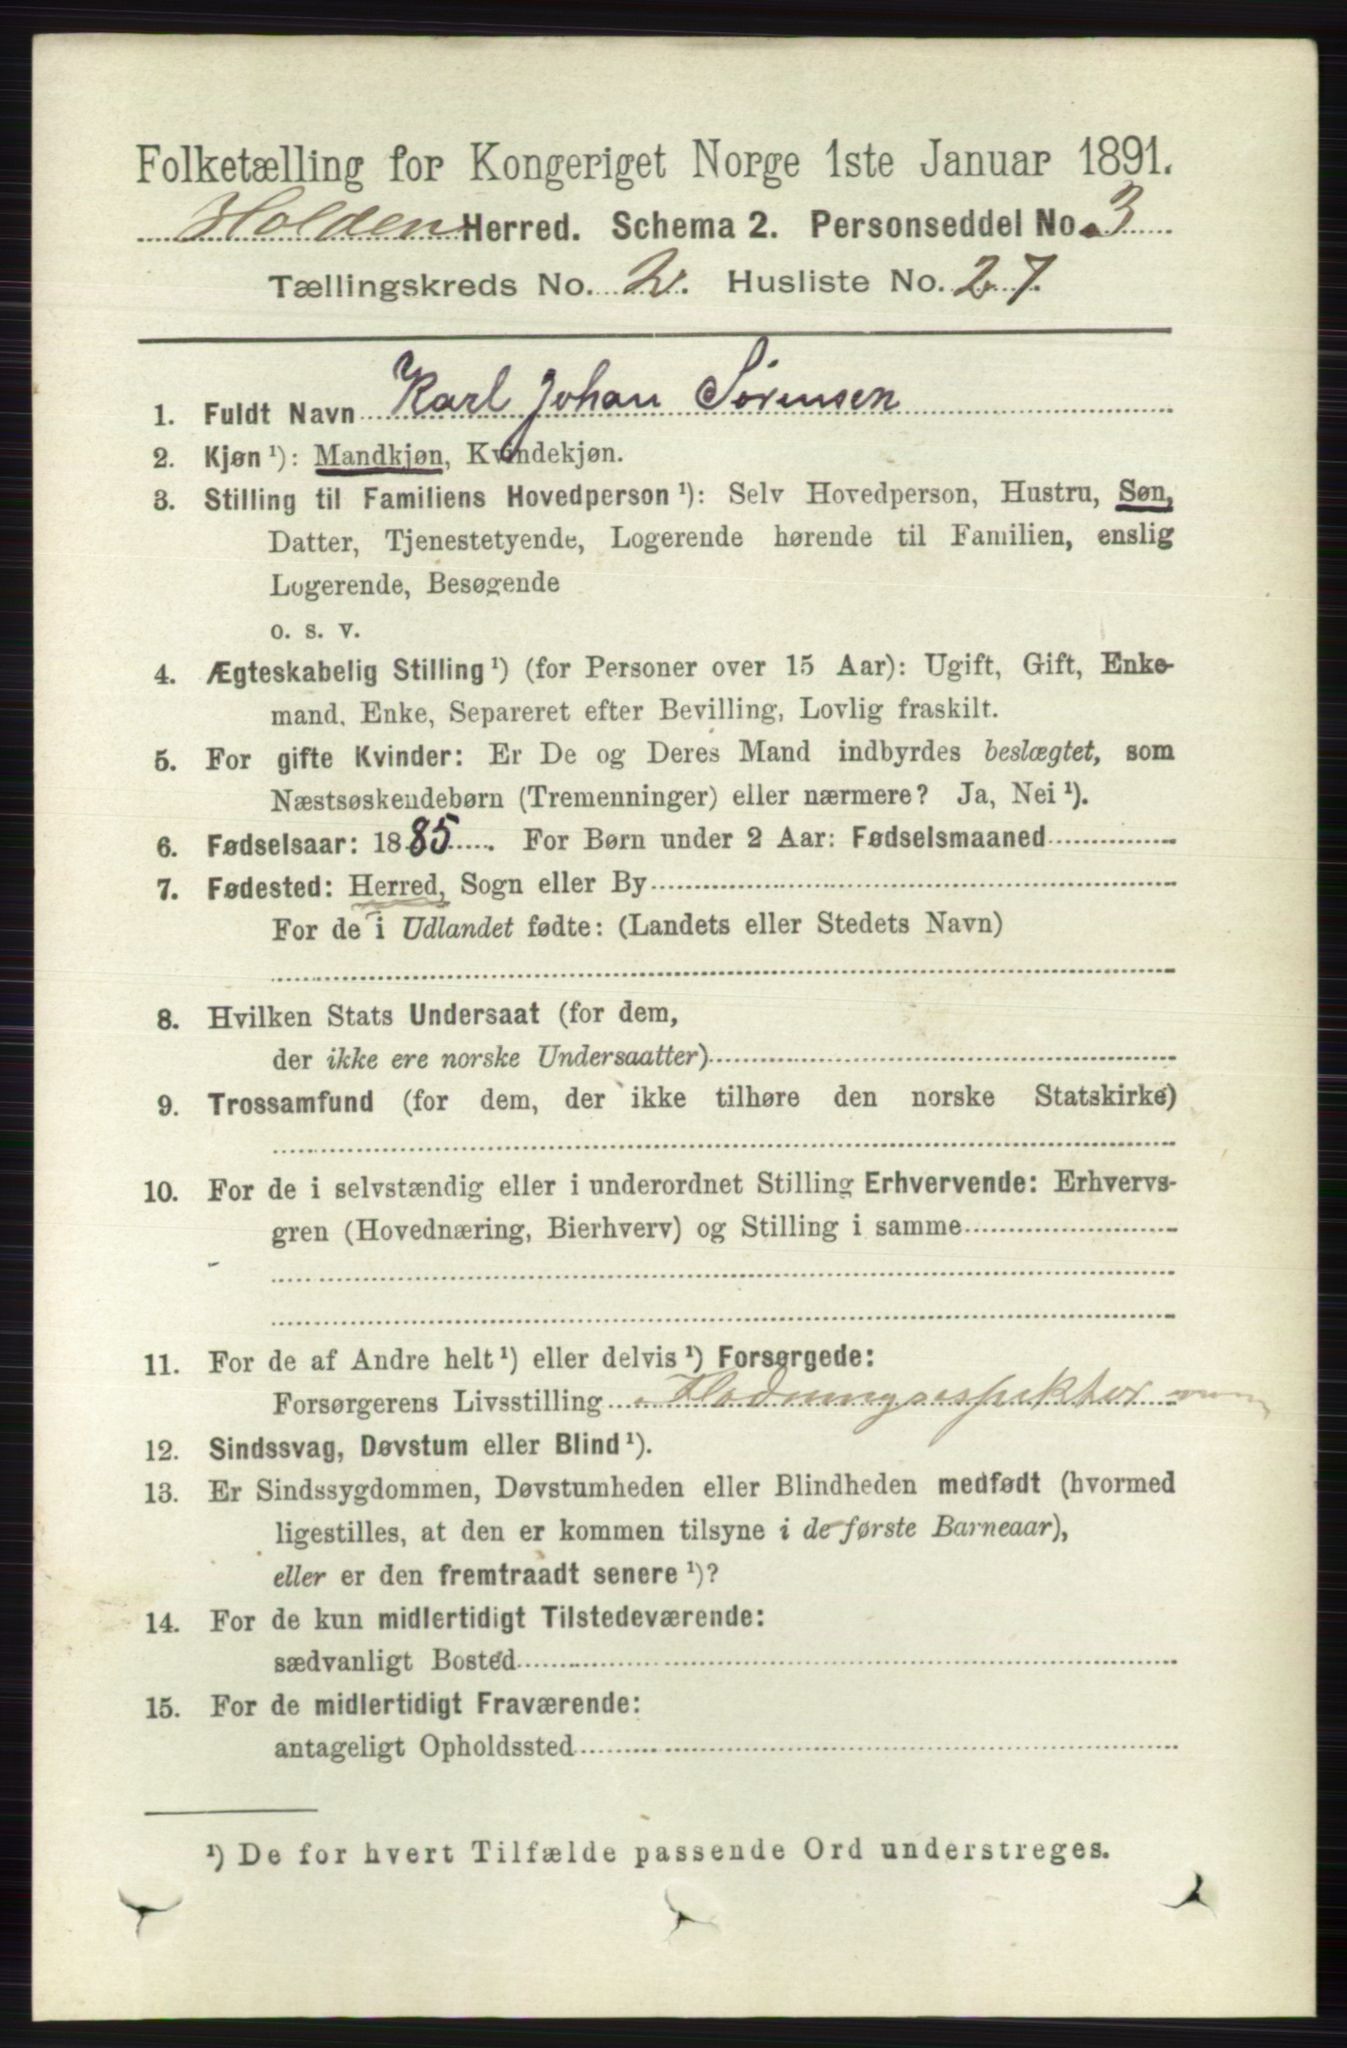 Folketælling for Kongeriget Norge 1ste Januar 1891.
Holden Herred. Schema 2. Personseddel No. 3
Tællingskreds No. 2. Husliste No. 27.
1. Fuldt Navn Karl Johan Sørensen
2. Kjøn ¹): Mandkjøn, Kvindekjøn.
3. Stilling til Familiens Hovedperson ¹): Selv Hovedperson, Hustru, Søn,
Datter, Tjenestetyende, Logerende hørende til Familien, enslig
Logerende, Besøgende
o. s. v.
4. Ægteskabelig Stilling ¹) (for Personer over 15 Aar): Ugift, Gift, Enke-
mand, Enke, Separeret efter Bevilling, Lovlig fraskilt.
5. For gifte Kvinder: Er De og Deres Mand indbyrdes beslægtet, som
Næstsøskendebørn (Tremenninger) eller nærmere? Ja, Nei ¹).
6. Fødselsaar: 1885. For Børn under 2 Aar: Fødselsmaaned
7. Fødested: Herred, Sogn eller By
For de i Udlandet fødte: (Landets eller Stedets Navn)
8. Hvilken Stats Undersaat (for dem,
der ikke ere norske Undersaatter)
9. Trossamfund (for dem, der ikke tilhøre den norske Statskirke)
10. For de i selvstændig eller i underordnet Stilling Erhvervende: Erhvervs-
gren (Hovednæring, Bierhverv) og Stilling i samme
11. For de af Andre helt ¹) eller delvis ¹) Forsørgede:
Forsørgerens Livsstilling
12. Sindssvag, Døvstum eller Blind ¹).
13. Er Sindssygdommen, Døvstumheden eller Blindheden medfødt (hvormed
ligestilles, at den er kommen tilsyne i de første Barneaar),
eller er den fremtraadt senere ¹)?
14. For de kun midlertidigt Tilstedeværende:
sædvanligt Bosted
15. For de midlertidigt Fraværende:
antageligt Opholdssted
¹) De for hvert Tilfælde passende Ord understreges.